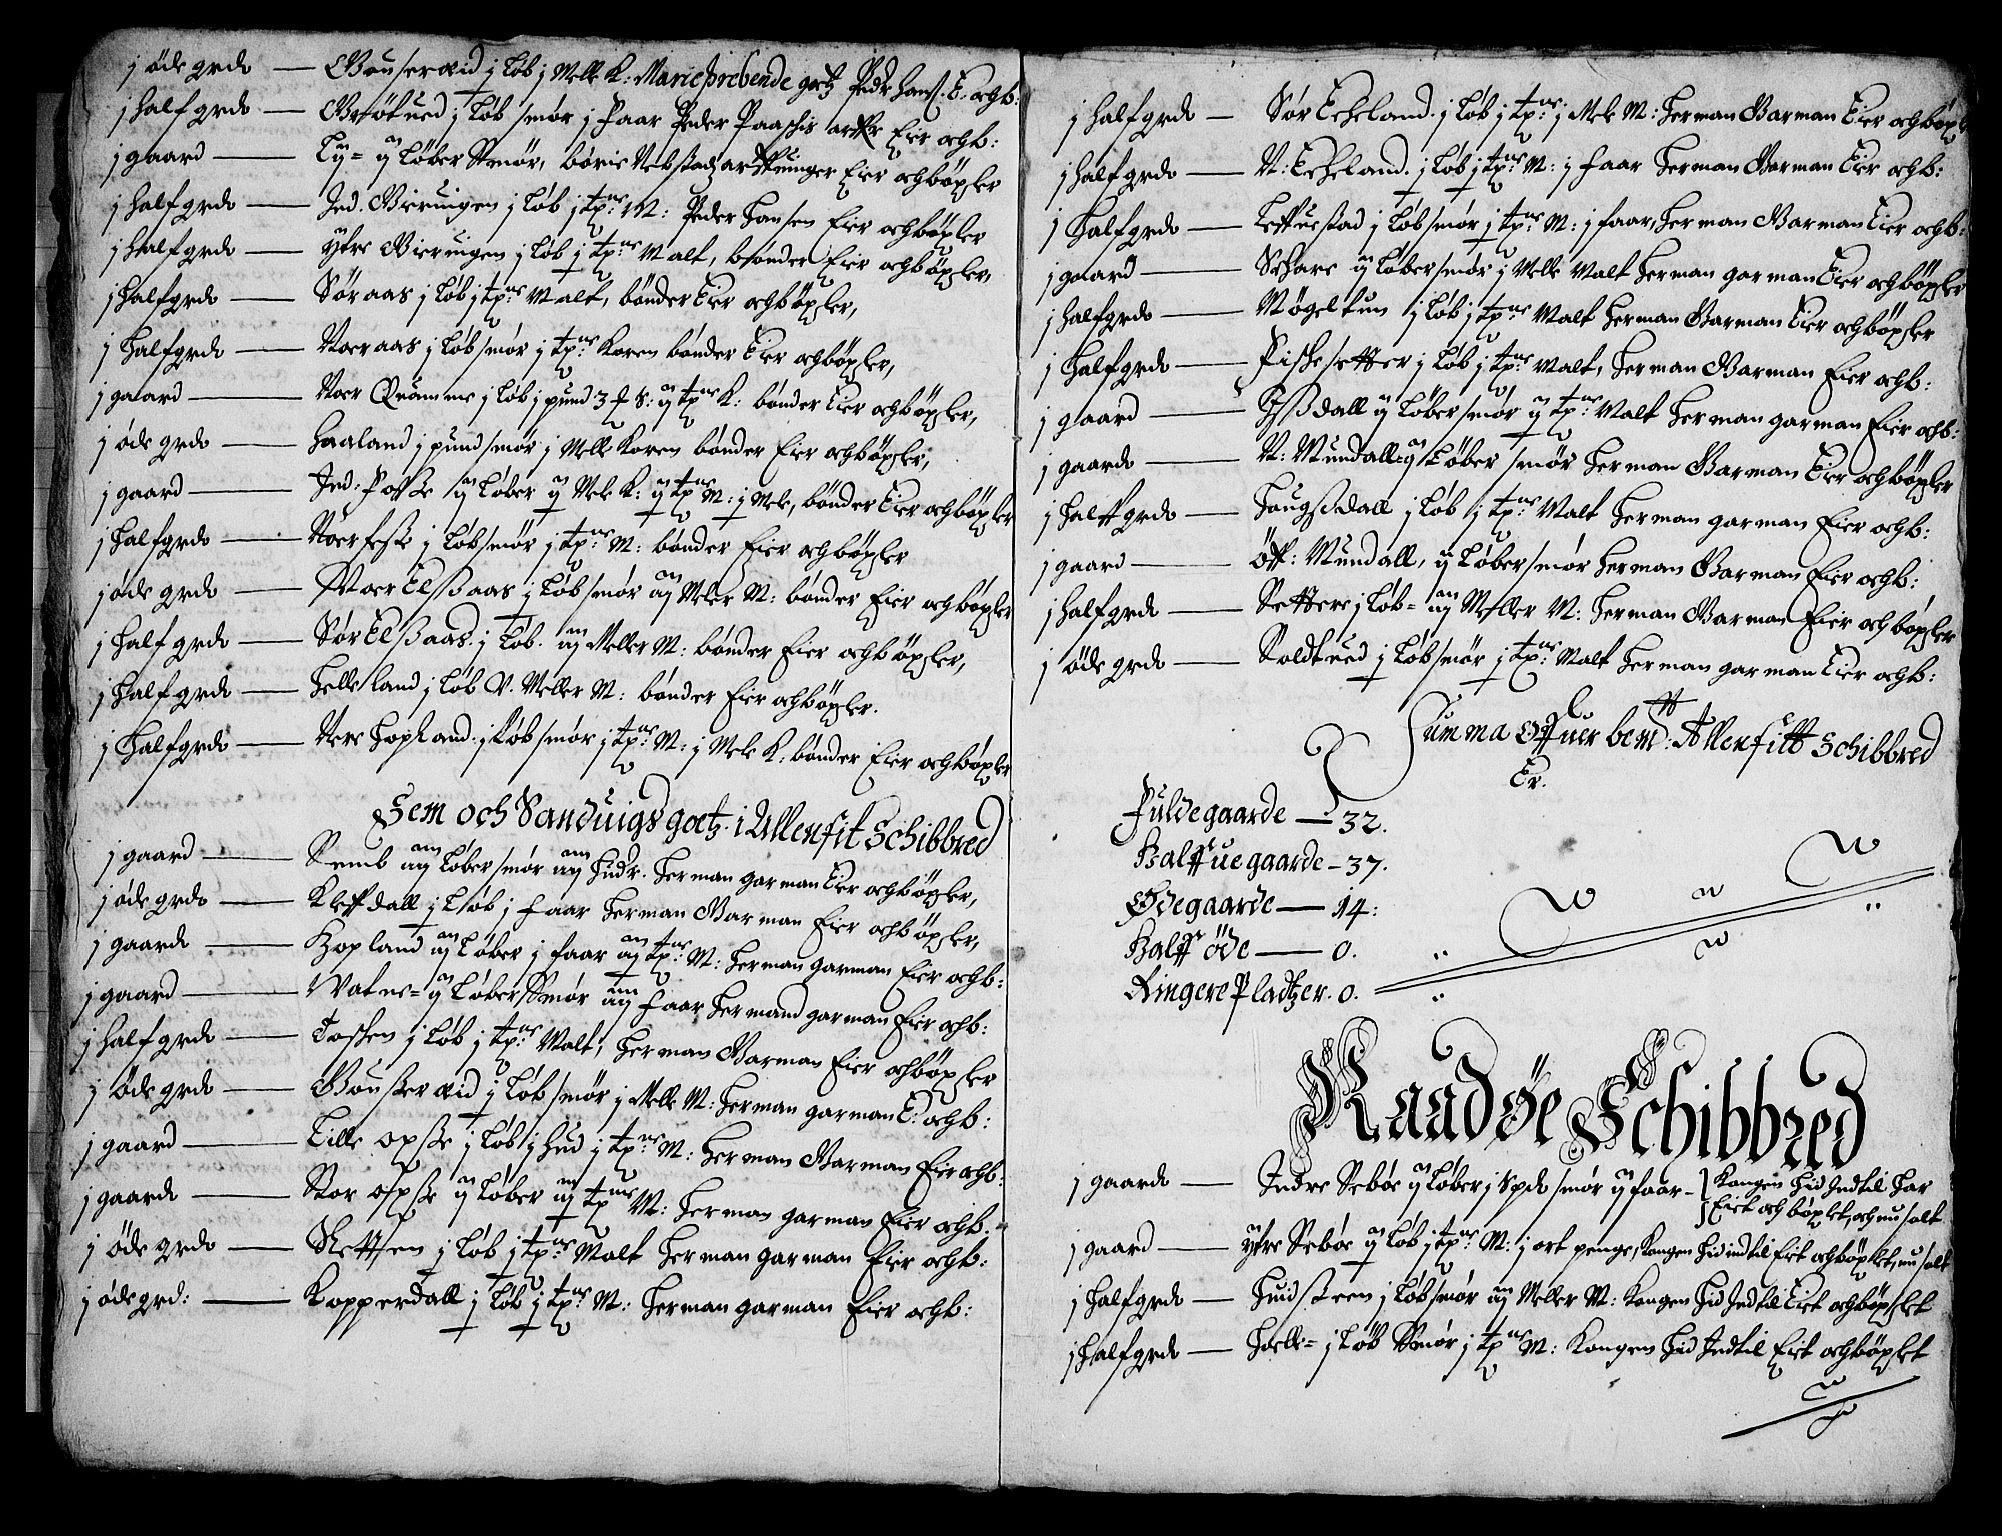 j øde grdo — Gouseræid j løb j Melle K: Marie prebende gotz Pedr Hanß: E. och b:
j halfgrdo — Brötued j løb smør j faar Peder Paaschis arffr Eier och b:
j gaard — Ly= ij løber Smør, börie Vebstadz arffuinger Eier och böxler
j halfgrdo — Ind. Bieringen j løb j tpne: M: Peder Hansen Eier och böxler
j halfgrdo — ytre Bieringen j løb j tpne Malt, bönder Eier och böxler,
j halfgrdo — Söraas j løb j tpne Malt, bönder Eier och böxler,
j Halfgrdo — Noeraas j løb smør j tpne Koren bönder Eier och böxler,
j gaard — Noer Quamme j løb j pund 3 S: ij tpne K: bönder Eier och böxler,
j øde grdo — Haaland j pund smør j Melle Koren bönder Eier och böxler,
j gaard — Ind: Foße ij løber ij Mele K: ij tpne M: j Mele, bönder Eier och böxler
j halfgrdo — Noerfeße j løb smør j tpne M: bönder Eier och böxler
j øde grdo — Noer Elßaas j løb smør iij Meler M: bönder Eier och böxler
j halfgrdo — Sör Elßaas. j løb. iij Meller M: bönder Eier och böxler,
j halfgrdo — Helleland j løb V. Meller M: bönder Eier och böxler.
j Halfgrdo — Nere Hopland. j løb smør j tpne M: j Mele K: bönder Eier och böxler
Sem och Sanduigs gotz i Allenfit Schibbred
j gaard — Semb iiij løber smør iiij Hudr. Herman garman Eier och böxler,
j øde grdo — Kleffdall j løb j faar Herman Garman Eier och böxler,
j gaardo — Hopland iij løber j faar iij tpne M: Herman garman Eier och b:
j gaard — Vatne= ij løber Smør iiij faar Hermand garman Eier och b:
j halfgrdo — Toschen j løb j tpne Malt, Herman Garman Eier och böxler
j øde grdo — Gouseræid j løb smør j Melle M: Herman garman E: och b:
j gaard — Lille opße j løb j hud j tpne M: Herman Garman Eier och b:
j gaardo — Stor ospße ij løber iij tpne M: Herman garman Eier och b:
j øde grdo — Sletten j løb j tpne Malt Herman garman Eier och b:
j øde grd: — Kopperdall j løb j tpne M: Herman garman Eier och b:
j halfgrdo — Sör Eckeland. j løb j tpne: j Mele M: Herman Garman Eier och böxler
j halfgrdo — N: Eckeland. j løb j tpne M: j faar Herman Garman Eier och b:
j Halfgrdo — Leffuestad j løb smør j tpne M: j faar, Herman Garman Eier och b:
j gaard — Schare ij løber smør j Melle Malt Herman garman Eier och böxler
j halfgrdo — Mögeltun j løb j tpne Malt Herman Garman Eier och böxler
j Halfgrdo — Fischesetter j løb j tpne Malt, Herman Garman Eier och b:
j gaard — Ißdall ij løber smør ij tpne Malt Herman garman Eier och b:
j gaardo — N: Mundall= ij løber smør Herman Garman Eier och böxler
j halffgrdo — Haugßdall j løb j tpne Malt Herman garman Eier och b:
j gaard — Öff: Mundall, ij løber smør Herman Garman Eier och b:
j halfgrdo — Settere j løb= iij Meller M: Herman Garman Eier och böxler
j øde grdo — Soldtued j løb smør j tpne Malt Herman garman Eier och b:
Summa Offuer bemt: Allenfitt Schibbred
Er.
Fuldegaarde — 32.
Halffuegaarde — 37.
Ødegaarde — 14:
Halff øde — 0.
Ringere Pladtzer. 0.
Raadøe Schibbred
j gaardo — Indre Seböe ij løber j spdo smør ij faar — Kongen hid Indtil har
Eiet och böxlet, och nu solt
j gaard — ytre Seböe ij løb j tpne M: j ort penge, Kongen hid indtil Eiet och böxlet, nu solt
j halfgrdo — Huidsteen j løb smør iij Meller M: Kongen hid Indtil Eiet och böxlet
j halfgrdo — Helle= j løb Smør j tpne M: Kongen hid Indtil Eiet och böxlet